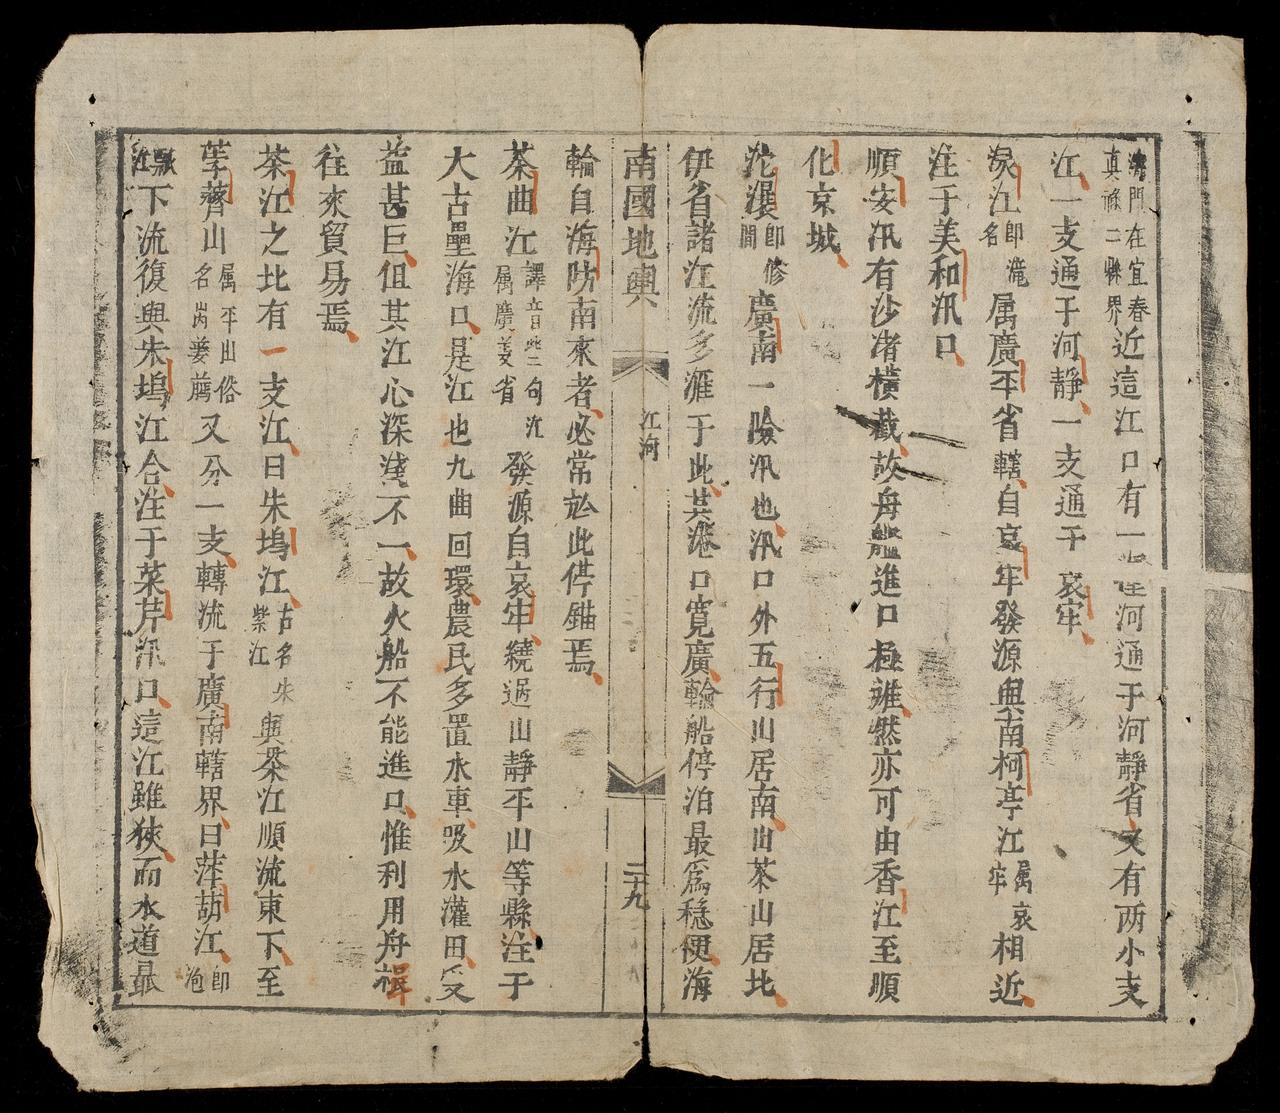 海門在宜春真祿二縣界近這江口有一支江河通于河靜省又有两小支
江一支通于河靜一支通于哀牢
淚江即滝名属廣平省轄自哀牢發源與南柯亭江属哀牢相近
注于美和汛口
順安汛有沙渚橫截故舟艦進口極難然亦可由香江至順
化京城
沱㶞即修間廣南一險汛也汛口外五行山居南山茶山居北
伊省諸江流多滙于此其港口寬廣輪船停泊最爲穩便海
南國地輿 江河 二十九
輪自海防南來者必常於此停錨焉
茶曲江譯音些句沉属廣義省發源自哀牢繞過山靜平山等縣注于
大古壘海口是江也九曲回環農民多置水車吸水灌田受
益甚巨但其江心深淺不一故火船不能進口惟利用舟楫
往來貿易焉
茶江之北有一支江曰朱塢江古名朱紫江與茶江順流東下至
荸薺山属平山俗名岗姜薦又分一支轉流于廣南轄界曰萍葫江即泡
瓢江下流復與朱塢江合注于菜芹汛口這江雖狹而水道最